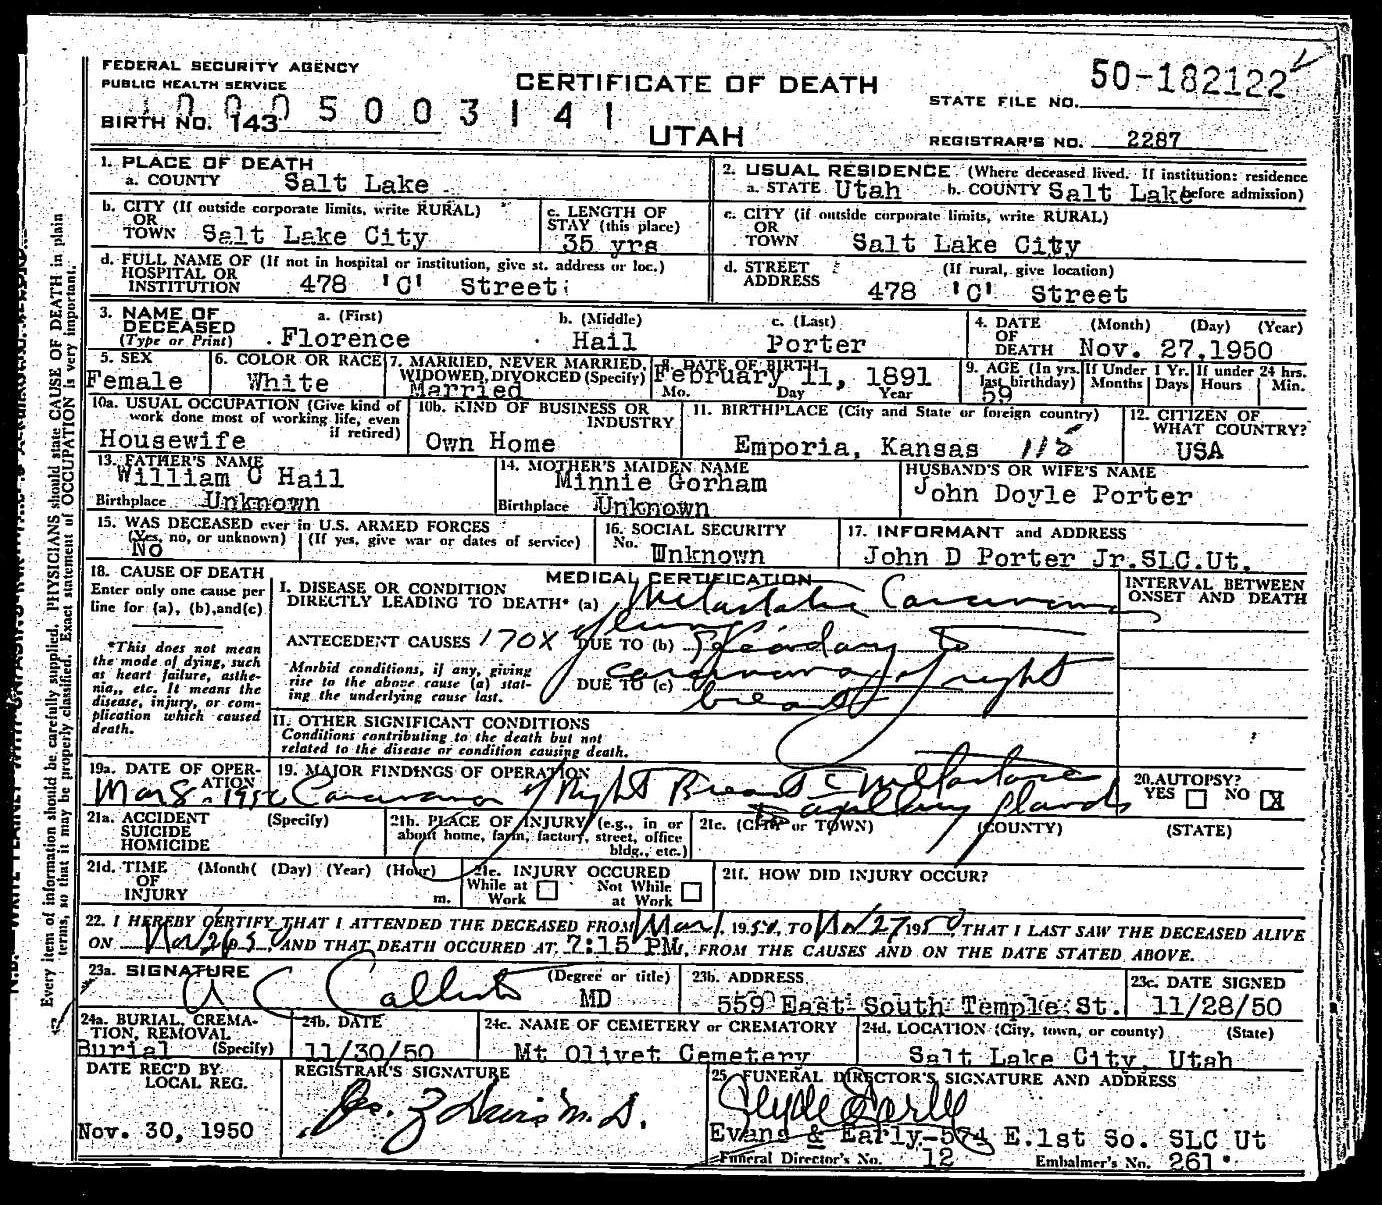 FEDERAL SECURITY AGENCY
PUBLIC HEALTH SERVICE
CERTIFICATE OF DEATH
50-182122
STATE FILE NO.
BIRTH NO. 143
5003141
UTAH
REGISTRAR'S NO. 2287
1. PLACE OF DEATH
a. COUNTY Salt Lake
2. USUAL RESIDENCE (Where deceased lived. If institution: residence before admission)
a. STATE Utah b. COUNTY Salt Lake
b. CITY (If outside corporate limits, write RURAL) OR TOWN Salt Lake City
c. LENGTH OF STAY (this place) 35 yrs
c. CITY (if outside corporate limits, write RURAL) OR TOWN Salt Lake City
d. FULL NAME OF (If not in hospital or institution, give st. address or loc.)
HOSPITAL OR INSTITUTION 478 'C' Street
d. STREET ADDRESS (If rural, give location)
478 'C' Street
3. NAME OF DECEASED (Type or Print)
a. (First) b. (Middle) c. (Last)
Florence Hail Porter
4. DATE OF DEATH (Month) (Day) (Year)
Nov. 27, 1950
5. SEX Female
6. COLOR OR RACE White
7. MARRIED, NEVER MARRIED, WIDOWED, DIVORCED (Specify) Married
8. DATE OF BIRTH February 11, 1891
Mo. Day Year
9. AGE (In yrs. last birthday) 59
If Under 1 Yr. Months Days
If under 24 hrs. Hours Min.
10a. USUAL OCCUPATION (Give kind of work done most of working life, even if retired)
Housewife
10b. KIND OF BUSINESS OR INDUSTRY
Own Home
11. BIRTHPLACE (City and State or foreign country)
Emporia, Kansas
12. CITIZEN OF WHAT COUNTRY?
USA
13. FATHER'S NAME
William G Hail
Birthplace Unknown
14. MOTHER'S MAIDEN NAME
Minnie Gorham
Birthplace Unknown
HUSBAND'S OR WIFE'S NAME
John Doyle Porter
15. WAS DECEASED ever in U.S. ARMED FORCES
(Yes, no, or unknown) (If yes, give war or dates of service)
No
16. SOCIAL SECURITY
No. Unknown
17. INFORMANT and ADDRESS
John D Porter Jr.SLC.Ut.
18. CAUSE OF DEATH
Enter only one cause per line for (a), (b), and (c)
*This does not mean the mode of dying, such as heart failure, asthenia, etc. It means the disease, injury, or complication which caused death.
MEDICAL CERTIFICATION
INTERVAL BETWEEN ONSET AND DEATH
I. DISEASE OR CONDITION DIRECTLY LEADING TO DEATH* (a) Metastatic Carcinoma
of lung
ANTECEDENT CAUSES 170X DUE TO (b) Secondary to
Morbid conditions, if any, giving rise to the above cause (a) stating the underlying cause last.
DUE TO (c) carcinoma of right
breast
II. OTHER SIGNIFICANT CONDITIONS
Conditions contributing to the death but not related to the disease or condition causing death.
19a. DATE OF OPERATION
Mar 8 - 1950
19. MAJOR FINDINGS OF OPERATION
Carcinoma of Right Breast c Metastases
axillary glands
20. AUTOPSY?
YES NO X
21a. ACCIDENT SUICIDE HOMICIDE (Specify)
21b. PLACE OF INJURY (e.g., in or about home, farm, factory, street, office bldg., etc.)
21c. (CITY or TOWN) (COUNTY) (STATE)
21d. TIME OF INJURY (Month) (Day) (Year) (Hour) m.
21e. INJURY OCCURED
While at Work Not While at Work
21f. HOW DID INJURY OCCUR?
22. I HEREBY CERTIFY THAT I ATTENDED THE DECEASED FROM Mar 1, 1950, TO Nov 27 1950 THAT I LAST SAW THE DECEASED ALIVE
ON Nov 26 50, AND THAT DEATH OCCURED AT 7:15 PM, FROM THE CAUSES AND ON THE DATE STATED ABOVE.
23a. SIGNATURE (Degree or title)
A C Callister MD
23b. ADDRESS
559 East South Temple St.
23c. DATE SIGNED
11/28/50
24a. BURIAL, CREMATION, REMOVAL (Specify)
Burial
24b. DATE
11/30/50
24c. NAME OF CEMETERY or CREMATORY
Mt Olivet Cemetery
24d. LOCATION (City, town, or county) (State)
Salt Lake City, Utah
DATE REC'D BY LOCAL REG.
Nov. 30, 1950
REGISTRAR'S SIGNATURE
M.D.
25. FUNERAL DIRECTOR'S SIGNATURE AND ADDRESS
Clyde Early
Evans & Early-574 E.1st So. SLC Ut
Funeral Director's No. 12 Embalmer's No. 261
Every item of information should be carefully supplied. PHYSICIANS should state CAUSE OF DEATH in plain
terms, so that it may be properly classified. Exact statement of OCCUPATION is very important.